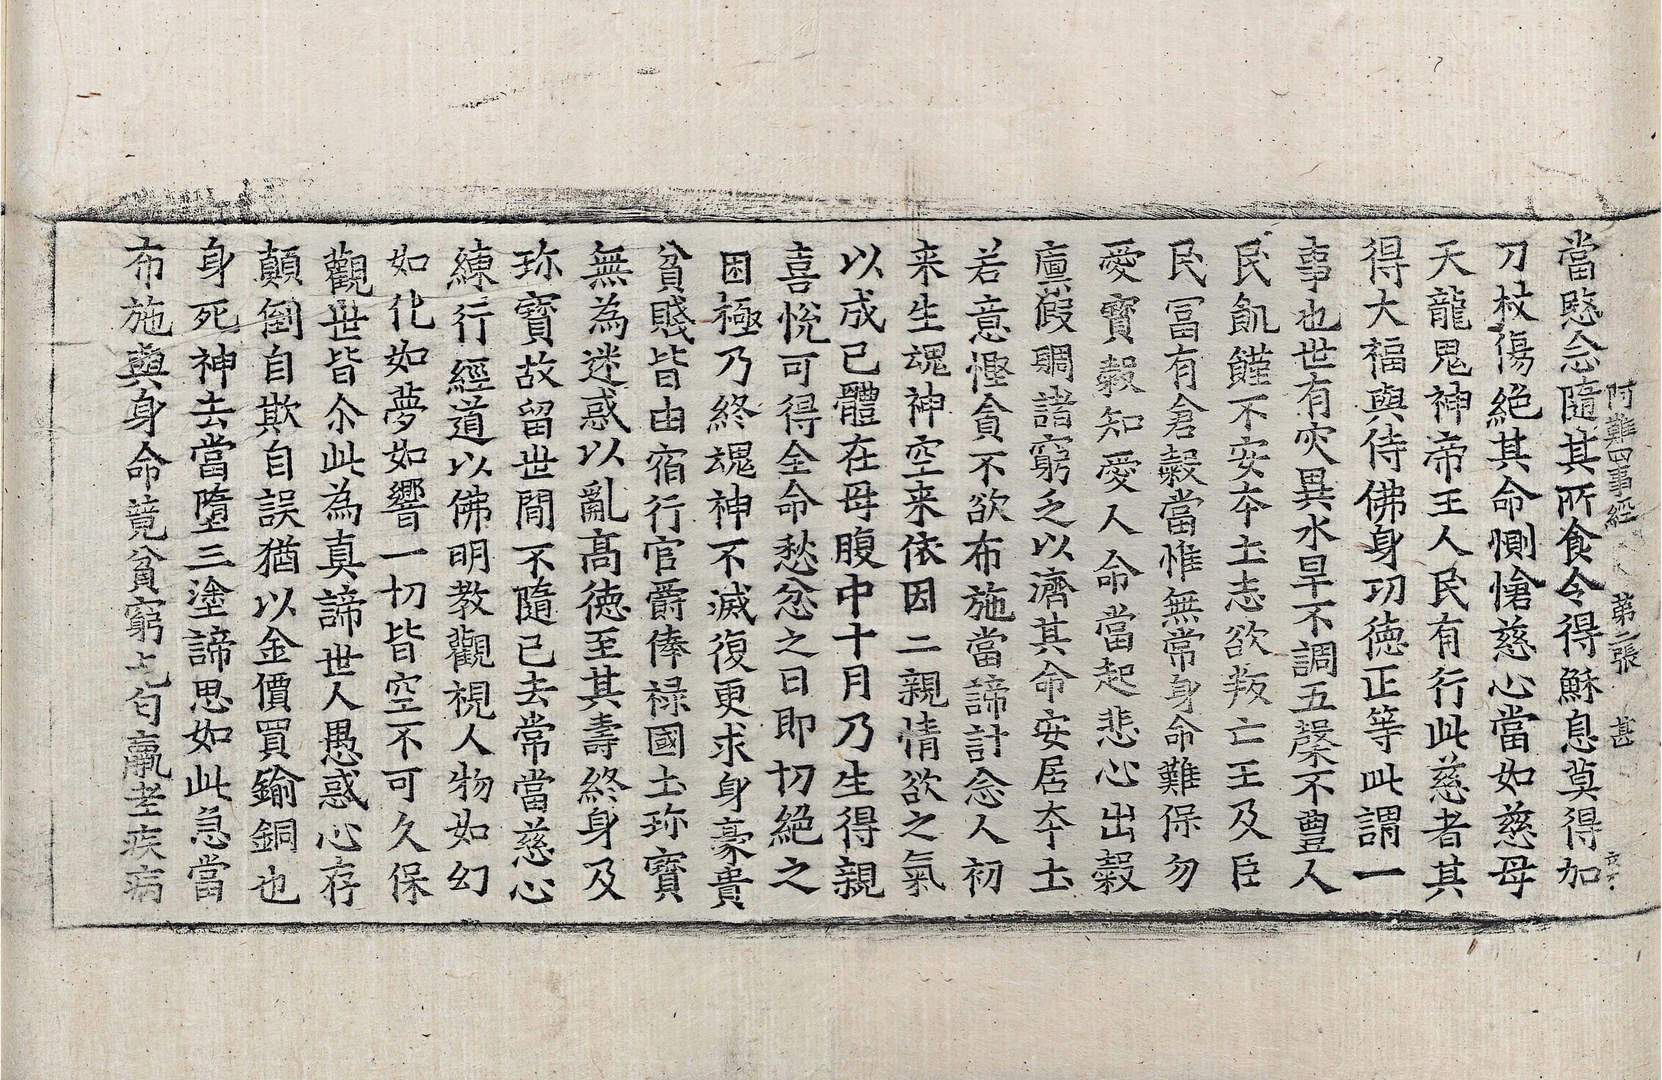 阿難四事經 第二張 甚
當愍念隨其所食令得穌息莫得加
刀杖傷絕其命惻愴慈心當如慈母
天龍鬼神帝王人民有行此慈者其
得大福與侍佛身功徳正等此謂一
事也世有灾異水旱不調五糓不豊人
民飢饉不安夲土志欲叛亡王及臣
民冨有倉糓當惟無常身命難保勿
愛寳糓知愛人命當起悲心出糓
廪假賙諸窮乏以濟其命安居夲土
若意慳貪不欲布施當諦計念人初
来生魂神空来依因二親情欲之氣
以成已體在母腹中十月乃生得親
喜悅可得全命愁忿之日即切絕之
因極乃終魂神不滅復更求身豪貴
貧賤皆由宿行官爵俸禄國土珎寳
無為迷惑以亂髙德至其壽終身及
珎寳故留世間不隨已去常當慈心
練行經道以佛明教觀視人物如幻
如化如夢如響一切皆空不可久保
觀世皆尒此為真諦世人愚惑心存
顛倒自欺自誤猶以金價買鍮銅也
身死神去當墮三塗諦思如此急當
布施與身命竟貧窮乞匃羸老疾病